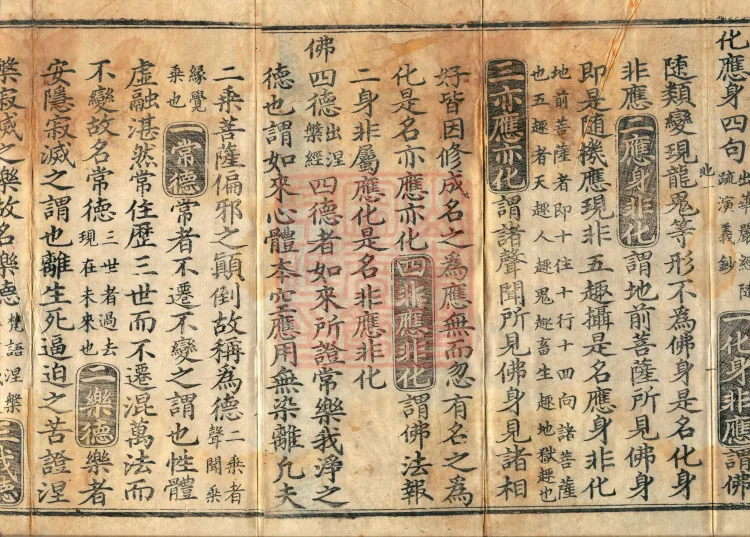 化應身四句出華嚴經隨疏演義鈔此一化身非應謂佛
隨類變現龍鬼等形不為佛身是名化身
非應二應身非化謂地前菩薩所見佛身
即是隨機應現非五趣攝是名應身非化
地前菩薩者即十住十行十回向諸菩薩
也五趣者天趣人趣鬼趣畜生趣地獄趣也
三亦應亦化謂諸聲聞所見佛身見諸相
好皆因修成名之為應無而忽有名之為
化是名亦應亦化四非應非化謂佛法報
二身非屬應化是名非應非化
佛四德出涅槃經四德者如來所證常樂我淨之
德也謂如來心體本空應用無染離凡夫
二乘菩薩偏邪之顛倒故稱為德二乘者聲聞乘
緣覺乘也一常德常者不遷不變之謂也性體
虛融湛然常住歷三世而不遷混萬法而
不變故名常德三世者過去現在未來也二樂德樂者
安隱寂滅之謂也離生死逼迫之苦證涅
槃寂滅之樂故名樂德梵語涅槃三我德